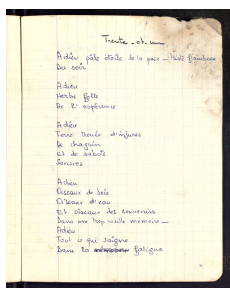 Trente et un
Adieu pâle étoile de la paix — triste flamboyer
Du soir
Adieu
Herbe folle
De l'espérance
Adieu
Terre trouée d'injures
De chagrin
Et de sabots
Sonores
Adieu
Oiseaux de bois
Oiseaux d'eau
Et oiseaux des souvenirs
Dans une trop vieille mémoire —
Adieu
Tout ce qui saigne
Dans la fatigue